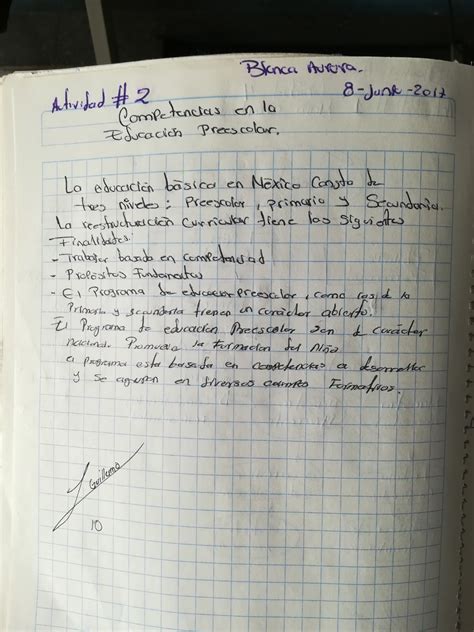 Blanca Aurora.
Actividad # 2
8-Juni-2017
Competencias en la
Educación Preescolar.
La educación básica en México Consta de
tres niveles: Preescolar, primaria y Secundaria.
La reestructuración Curricular tiene las siguientes
Finalidades.
- Trabajar basado en competencias
- Propósitos Fundamentales
- El Programa de educacion preescolar, como los de la
Primaria y secundaria tienen un carácter abierto.
El Programa de educación Preescolar son de carácter
nacional. Promueve la Formacion del Niño
a programa esta basada en competencias a desarrollar
y se agrupan en diversos campos Formativos.
Guillermo
10